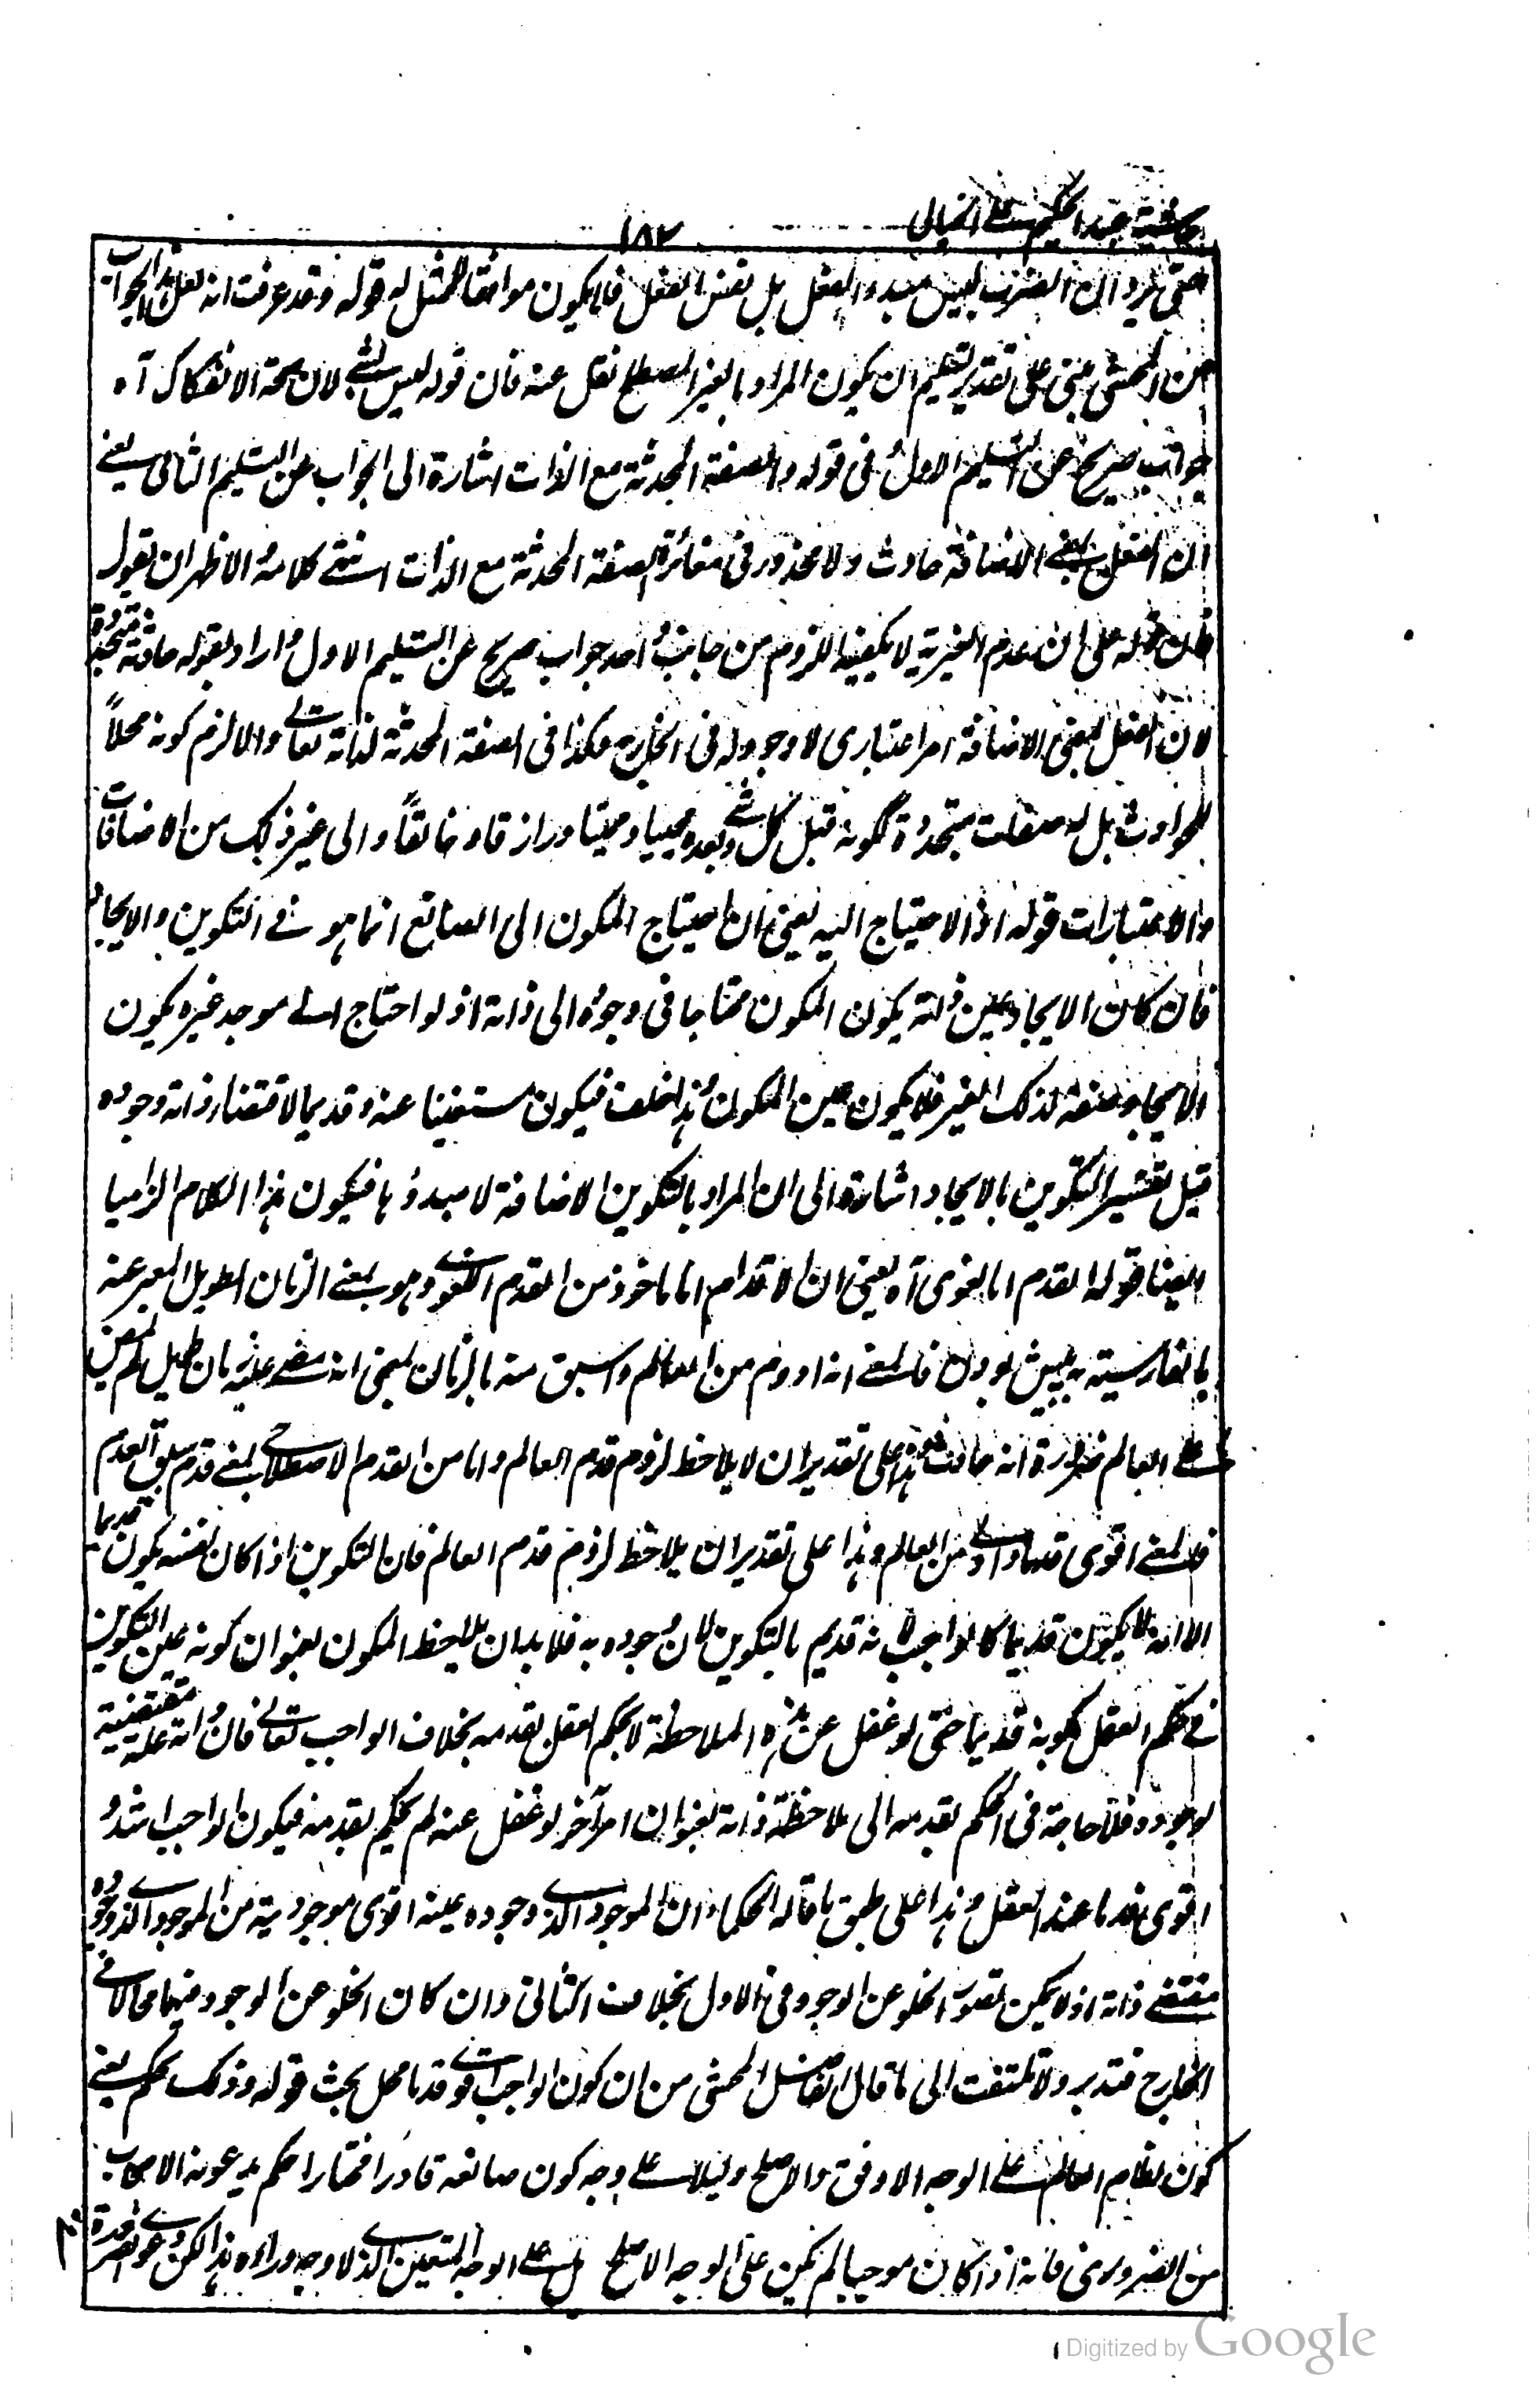 حاشیة عبد الحکیم علے الخیالی
١٨٢
حتی یرد ان الضرب لیس مبدء الفعل بل نفس الفعل فلا یکون موافقا للمثل له قوله وقد عرفت انه لعل هذا الجواب
من المحشی مبنی علی تقدیر تسلیم ان یکون المراد بالغیر المصطلح نقل عنه فان قوله لیس بشئے لان صحة الانفکاک آه
جواب صریح عن التسلیم الاول و فی قوله والصفة المحدثة مع الذات اشارة الی الجواب عن التسلیم الثانی یعنے
ان الفعل بمعنے الاضافة حادث ولا محذور فی مغائرة الصفة المحدثة مع الذات انتہے کلامه و الاظهر ان یقول
فان قوله علی ان عدم الغیریة لا یکفیه اللزوم من جانب واحد جواب صریح عن التسلیم الاول و اراد بقوله حادثة متجددة
لان الفعل بمعنی الاضافة امر اعتباری لا وجود له فی الخارج وکذا فی الصفة المحدثة لذاته تعالے والا لزم کونه محلاً
للحوادث بل له صفات متجددة ککونه قبل کل شئے وبعده ومحییا وممیتا ورازقا وخالقاً والی غیر ذلک من الاضافات
والاعتبارات قوله اذ الاحتیاج الیه یعنی ان احتیاج المکون الی الصانع انما هو فے التکوین والایجاد
فان کان الایجاد عین ذاته یکون المکون محتاجا فی وجوده الی ذاته اذ لو احتاج الے موجد غیره یکون
الایجاد صفة لذلک الغیر فلا یکون عین المکون وهذا خلف فیکون مستغنیا عنه وقدیما لاقتضاء ذاته وجوده
قیل تفسیر التکوین بالایجاد اشارة الی ان المراد بالتکوین الاضافة لا مبدؤها فیکون هذا الکلام الزامیا
ایضا قوله القدم اما لغوی آه یعنی ان الاقدام اما ماخوذ من القدم اللغوے وهو بمعنے الزمان الطویل المعبر عنه
بالفارسیة به پیش بودن فالمعنے انه ادوم من العالم واسبق منه بالزمان بمعنی انه مضے علیه زمان طویل لم یمض
علے العالم ضرورة انه حادث وهذا علی تقدیر ان لا یلاحظ لزوم قدم العالم واما من القدم الاصطلاحے بمعنے عدم سبق العدم
فالمعنے اقوی قدما واولے من العالم وهذا علی تقدیر ان یلاحظ لزوم قدم العالم فان التکوین اذا کان نفسه یکون قدیما
الا انه لا یکون قدیما کالواجب لانه قدیم بالتکوین لان وجوده به فلا بد ان یلاحظ المکون بعنوان کونه عین التکوین
فے حکم العقل بکونه قدیما حتی لو غفل عن هذه الملاحظة لا یحکم العقل بقدمه بخلاف الواجب تعالے فان ذاته علة مقتضیة
لوجوده فلا حاجة فی الحکم بقدمه الی ملاحظة ذاته بعنوان امر آخر لو غفل عنه لم یحکم بقدمه فیکون الواجب اشد و
اقوی قدما عند العقل وهذا علی طبق ما قاله الحکماء ان الموجود الذے وجوده عینه اقوی موجودیة من الموجود الذے وجوده
مقتضے ذاته اذ لا یمکن تصور الخلو عن الوجود فی الاول بخلاف الثانی وان کان الخلو عن الوجود فیهما محالا فے
الخارج فتدبر ولا تلتفت الی ما قال الفاضل المحشی من ان کون الواجب اقوے قدما محل بحث قوله وذلک لحکم یعنے
کون نظام العالم علے الوجه الاوفق والاصلح دلیلا علے وجه کون صانعه قادرا مختارا حکم یدعونه الاصحاب
من الضروری فانه اذا کان موجبا لم یکن علی الوجه الاصلح بل علے الوجه المتعین الذے لا وجه وراءه هذا لکن دعوے الضرورة